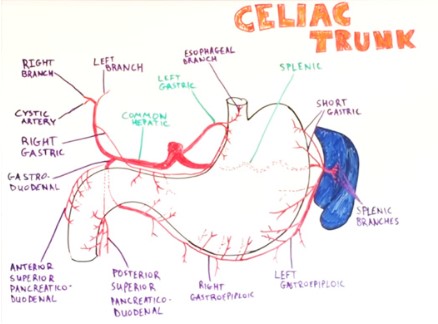 CELIAC
TRUNK
RIGHT
BRANCH
LEFT
BRANCH
ESOPHAGEAL
BRANCH
LEFT
GASTRIC
SPLENIC
CYSTIC
ARTERY
COMMON
HEPATIC
SHORT
GASTRIC
RIGHT
GASTRIC
GASTRO-
DUODENAL
SPLENIC
BRANCHES
ANTERIOR
SUPERIOR
PANCREATICO-
DUODENAL
POSTERIOR
SUPERIOR
PANCREATICO-
DUODENAL
RIGHT
GASTROEPIPLOIC
LEFT
GASTROEPIPLOIC